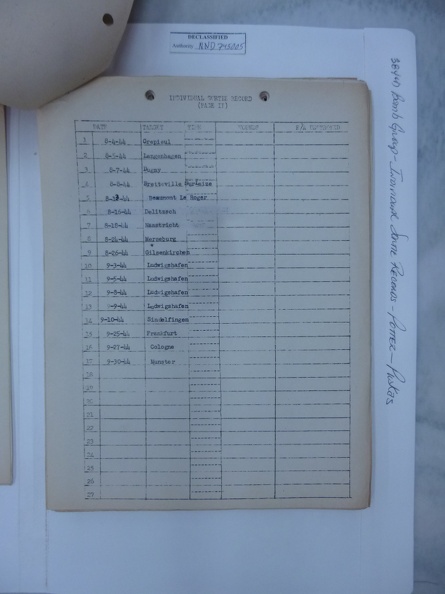 DECLASSIFIED
Authority NND 745005
INDIVIDUAL SORTIE RECORD
(PAGE II)
DATE TARGET TIME
1 8-4-44
2 8-5-44 Langenhagen
3 8-7-44
4 8-8-44 Bretteville
5 Beaumont Le Roger
6 8-16-44 Delitzsch
7 8-18-44 Maastricht
8 8-24-44 Merseburg
9 8-26-44 Gilsenkirchen
10 9-3-44 Ludwigshafen
11 9-5-44 Ludwigshafen
12 9-8-44 Ludwigshafen
13 -9-44 Ludwigshafen
14 9-10-44 Sindelfingen
15 9-25-44 Frankfurt
16 9-27-44 Cologne
17 9-30-44 Munster
18
19
20
21
22
23
24
25
26
27
384th Bomb Group - Individual Sortie Records - Potter - Purkas